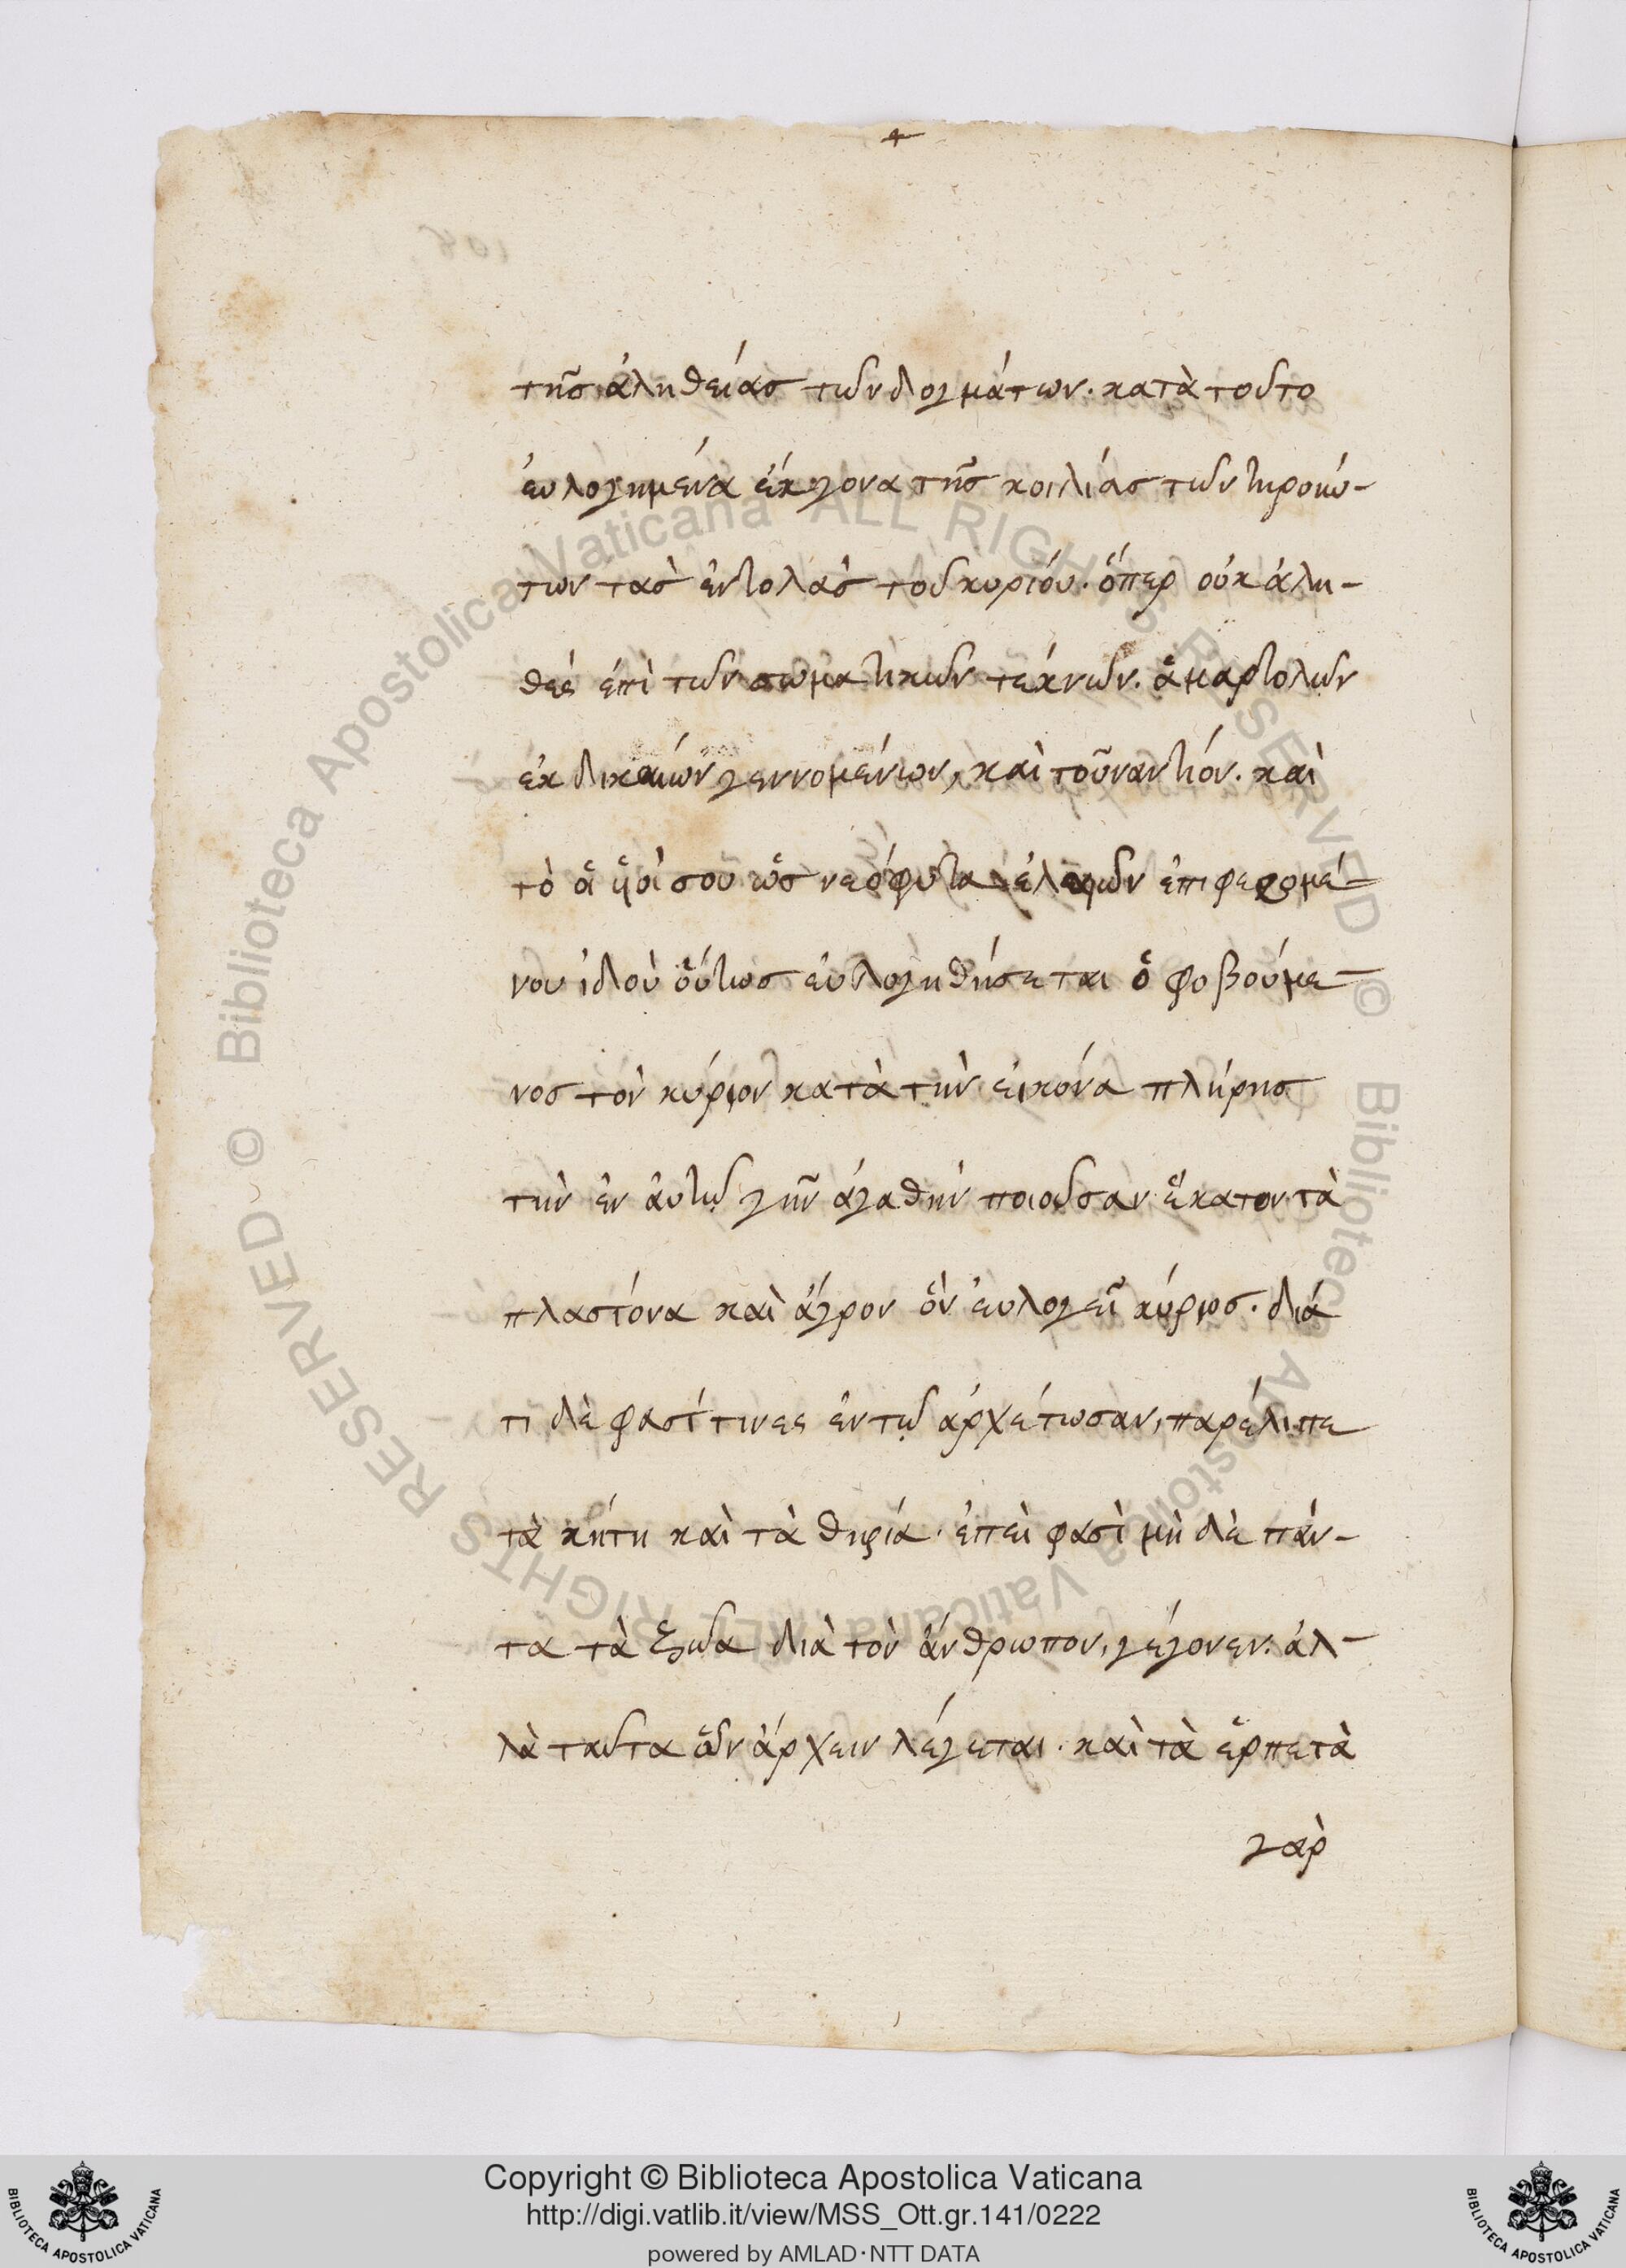 +
τῆς ἀληθείας τῶν δογμάτων. κατὰ τοῦτο
ἐυλογημένα ἐκγονα τῆς κοιλίας τῶν τηρούν-
των τὰς ἐντολὰς τοῦ κυρίου. ὅπερ οὐκ ἀλη-
θές ἐπὶ τῶν σωματικῶν τέκνων. ἁμαρτολῶν
ἐκ δικαίων γεννομένων, καὶ τοῦναντίον. καὶ
τὸ ἁ ὑοί σου ὡς νεόφυτα ἐλαιῶν ἐπιφερομέ-
νου ἰδοὺ οὕτως ἐυλογηθήσεται ὁ φοβούμε-
νος τὸν κύριον κατὰ τὴν εἰκόνα πλήρης
τὴν ἐν ἀυτῷ γῆν ἀγαθὴν ποιοῦσαν ἑκατοντα
πλαστόνα καὶ ἄγρον ὃν ἐυλογεῖ κύριος. διά
τι δὲ φασί τινες ἐν τῷ ἀρχέτωσαν, παρέλιπε
τὰ κήτη καὶ τὰ θηρία. ἐπεὶ φασὶ μὴ δὲ πάν-
τα τὰ ζῶα διὰ τὸν ἄνθρωπον, γέγονεν. ἀλ-
λὰ ταῦτα ὧν ἄρχειν λέγεται. καὶ τὰ ἑρπετὰ
γὰρ
Copyright © Biblioteca Apostolica Vaticana
http://digi.vatlib.it/view/MSS_Ott.gr.141/0222
powered by AMLAD·NTT DATA
BIBLIOTECA APOSTOLICA VATICANA
BIBLIOTECA APOSTOLICA VATICANA
© Biblioteca Apostolica Vaticana ALL RIGHTS RESERVED © Biblioteca Apostolica Vaticana ALL RIGHTS RESERVED